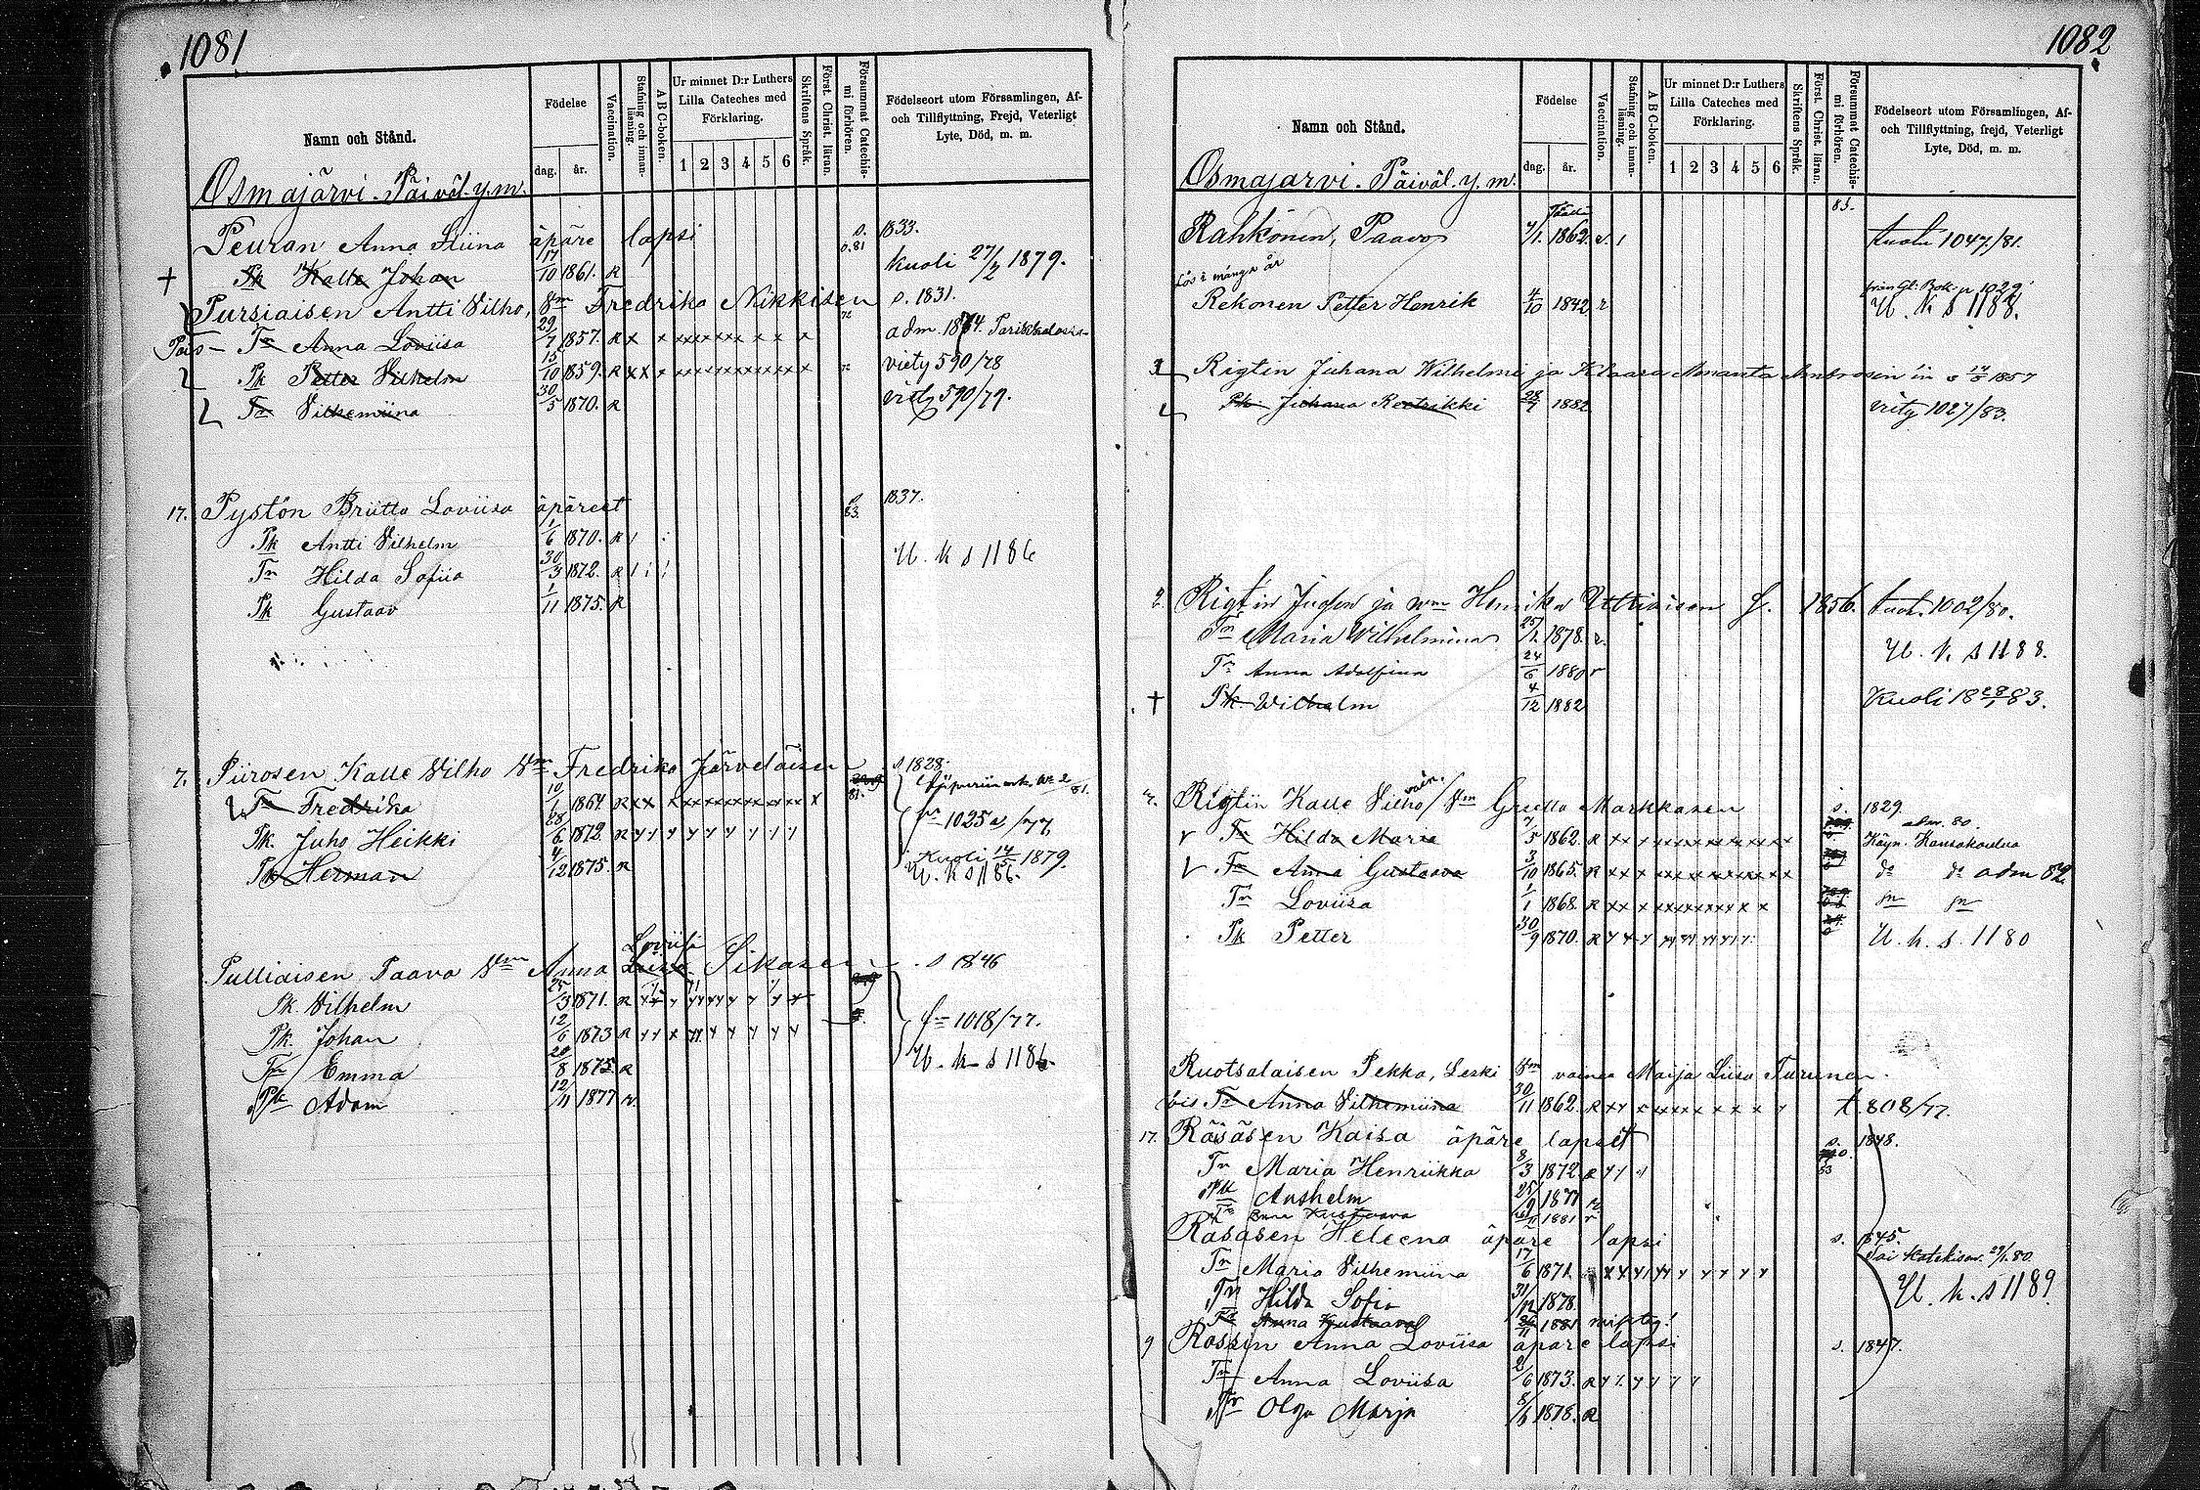 1081
Namn och Stånd.
Födelse
dag.
år.
Vaccination.
Stafning och innanläsning.
A B C-boken.
Ur minnet D:r Luthers
Lilla Cateches med
Förklaring.
1 2 3 4 5 6
Skriftens Språk.
Först. Christ. läran.
Försummat Catechismi förhören.
Födelseort utom Församlingen, Af-
och Tillflyttning, Frejd, Veterligt
Lyte, Död, m. m.
Osmajärvi. Päiväl. y. m.
Peuran Anna Stiina äpäre lapsi s. 1833.
+ Pk Kalle Johan 17/10 1861. R kuoli 27/2 1879.
Pursiaisen Antti Vilho, Vm Fredrika Nikkisen s. 1831.
Pois Tr Anna Loviisa 29/7 1857. R adm. 1874. Parikkalassa
Pk Petter Vilhelm 15/10 1859. R viety 590/78
Tr Vilhemiina 30/5 1870. R viety 590/79.
17. Pystön Briitta Loviisa äpäreet 1837.
Pk Antti Vilhelm 1/6 1870. R
Tr Hilda Sofiia 30/3 1872. R U. K s 1186
Pk Gustaav 1/11 1875. R
7. Piirosen Kalle Vilho Vm Fredrika Järveläisen s. 1828.
Tr Fredrika 10/1 1864 R
Pk. Juho Heikki 28/6 1872. R fr 1025 /77
Pk Herman 4/12 1875. R Kuoli 14/5 1879.
U. K s 1186.
Pulliaisen Paavo Vm Anna Loviisa Sikasen s 1846
Pk. Vilhelm 25/3 1871. R
Pk. Johan 12/6 1873 R fr 1018/77.
Tr Emma 20/8 1875 R U. k s 1186.
Pk Adam 12/11 1877 r.
1082
Namn och Stånd.
Födelse
dag.
år.
Vaccination.
Stafning och innanläsning.
A B C-boken.
Ur minnet D:r Luthers
Lilla Cateches med
Förklaring.
1 2 3 4 5 6
Skriftens Språk.
Först. Christ. läran.
Försummat Catechismi förhören.
Födelseort utom Församlingen, Af-
och Tillflyttning, frejd, Veterligt
Lyte, Död, m. m.
Osmajarvi. Päiväl. y. m.
Rahkönen, Paavo 1862. tuoli 1047/81.
Lös i många år
Rekonen Petter Henrik 4/10 1842 r U. K s 1188.
Rigtin Juhana Wilhelmi ja Klaara Amanta Ambrosen in s 14/5 1857
Pk Juhana Reetrikki 28/7 1882 viety 1027/83.
2. Rigtin Jusen ja wm Henrika Uttiaisen f. 1856. tuol. 1002/80.
Tr Maria Wilhelmina 25/1 1878. r. U. K. s 1188.
Tr Anna Adolfina 24/6 1880 r
+ Pk. Wilhelm 4/12 1882 Kuoli 18 28/1 83.
Rigtin Kalle Vilho Vm Gretta Markkasen s. 1829.
Tr Hilda Maria 7/5 1862. R Käyn. Kansakoulua
Tr Anna Gustaava 3/10 1865. R do do adm 82
Tr Loviisa 1/1 1868. R
Pk Petter 30/9 1870. R U. k. s. 1180
Ruotsalaisen Pekka, Leski Vm vainea Maija Liisa Turunen.
Tr Anna Vilhemiina 30/11 1862. R t. 808/77.
17. Räsäsen Kaisa äpäre lapset s. 1848.
Tr Maria Henriikka 8/3 1872 R
Pk Anshelm 25/9 1877
Räsäsen Heleena äpäre lapsi s. 1845.
Tr Maria Vilhemiina 17/6 1871.
Tr Hilda Sofia 31/12 1878. U. k. s 1189.
Tr Anna Kustaava 1881
9 Rossin Anna Loviisa äpäre lapsi s. 1847.
Tr Anna Loviisa 2/6 1873. R
Tr Olga Marja 1878. R